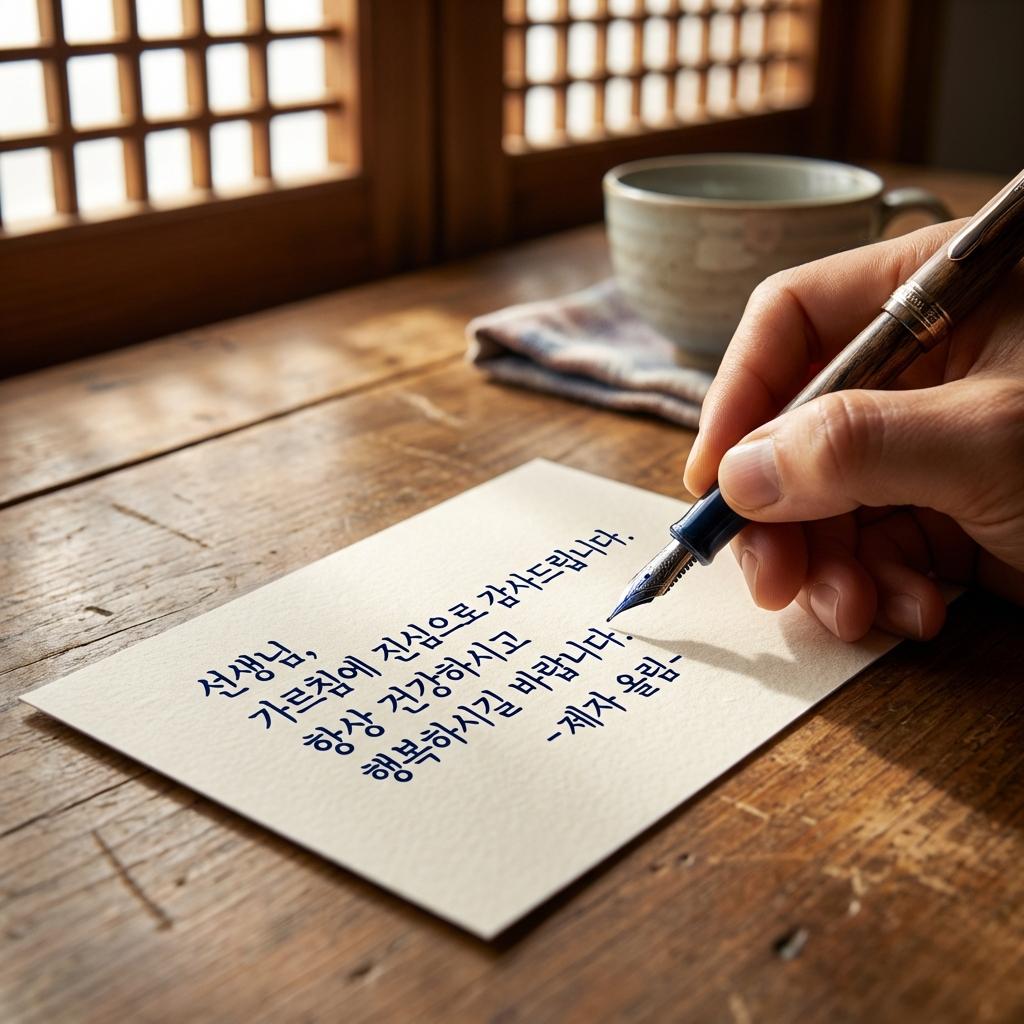 선생님,
가르침에 진심으로 감사드립니다.
항상 건강하시고
행복하시길 바랍니다.
-제자 올림-